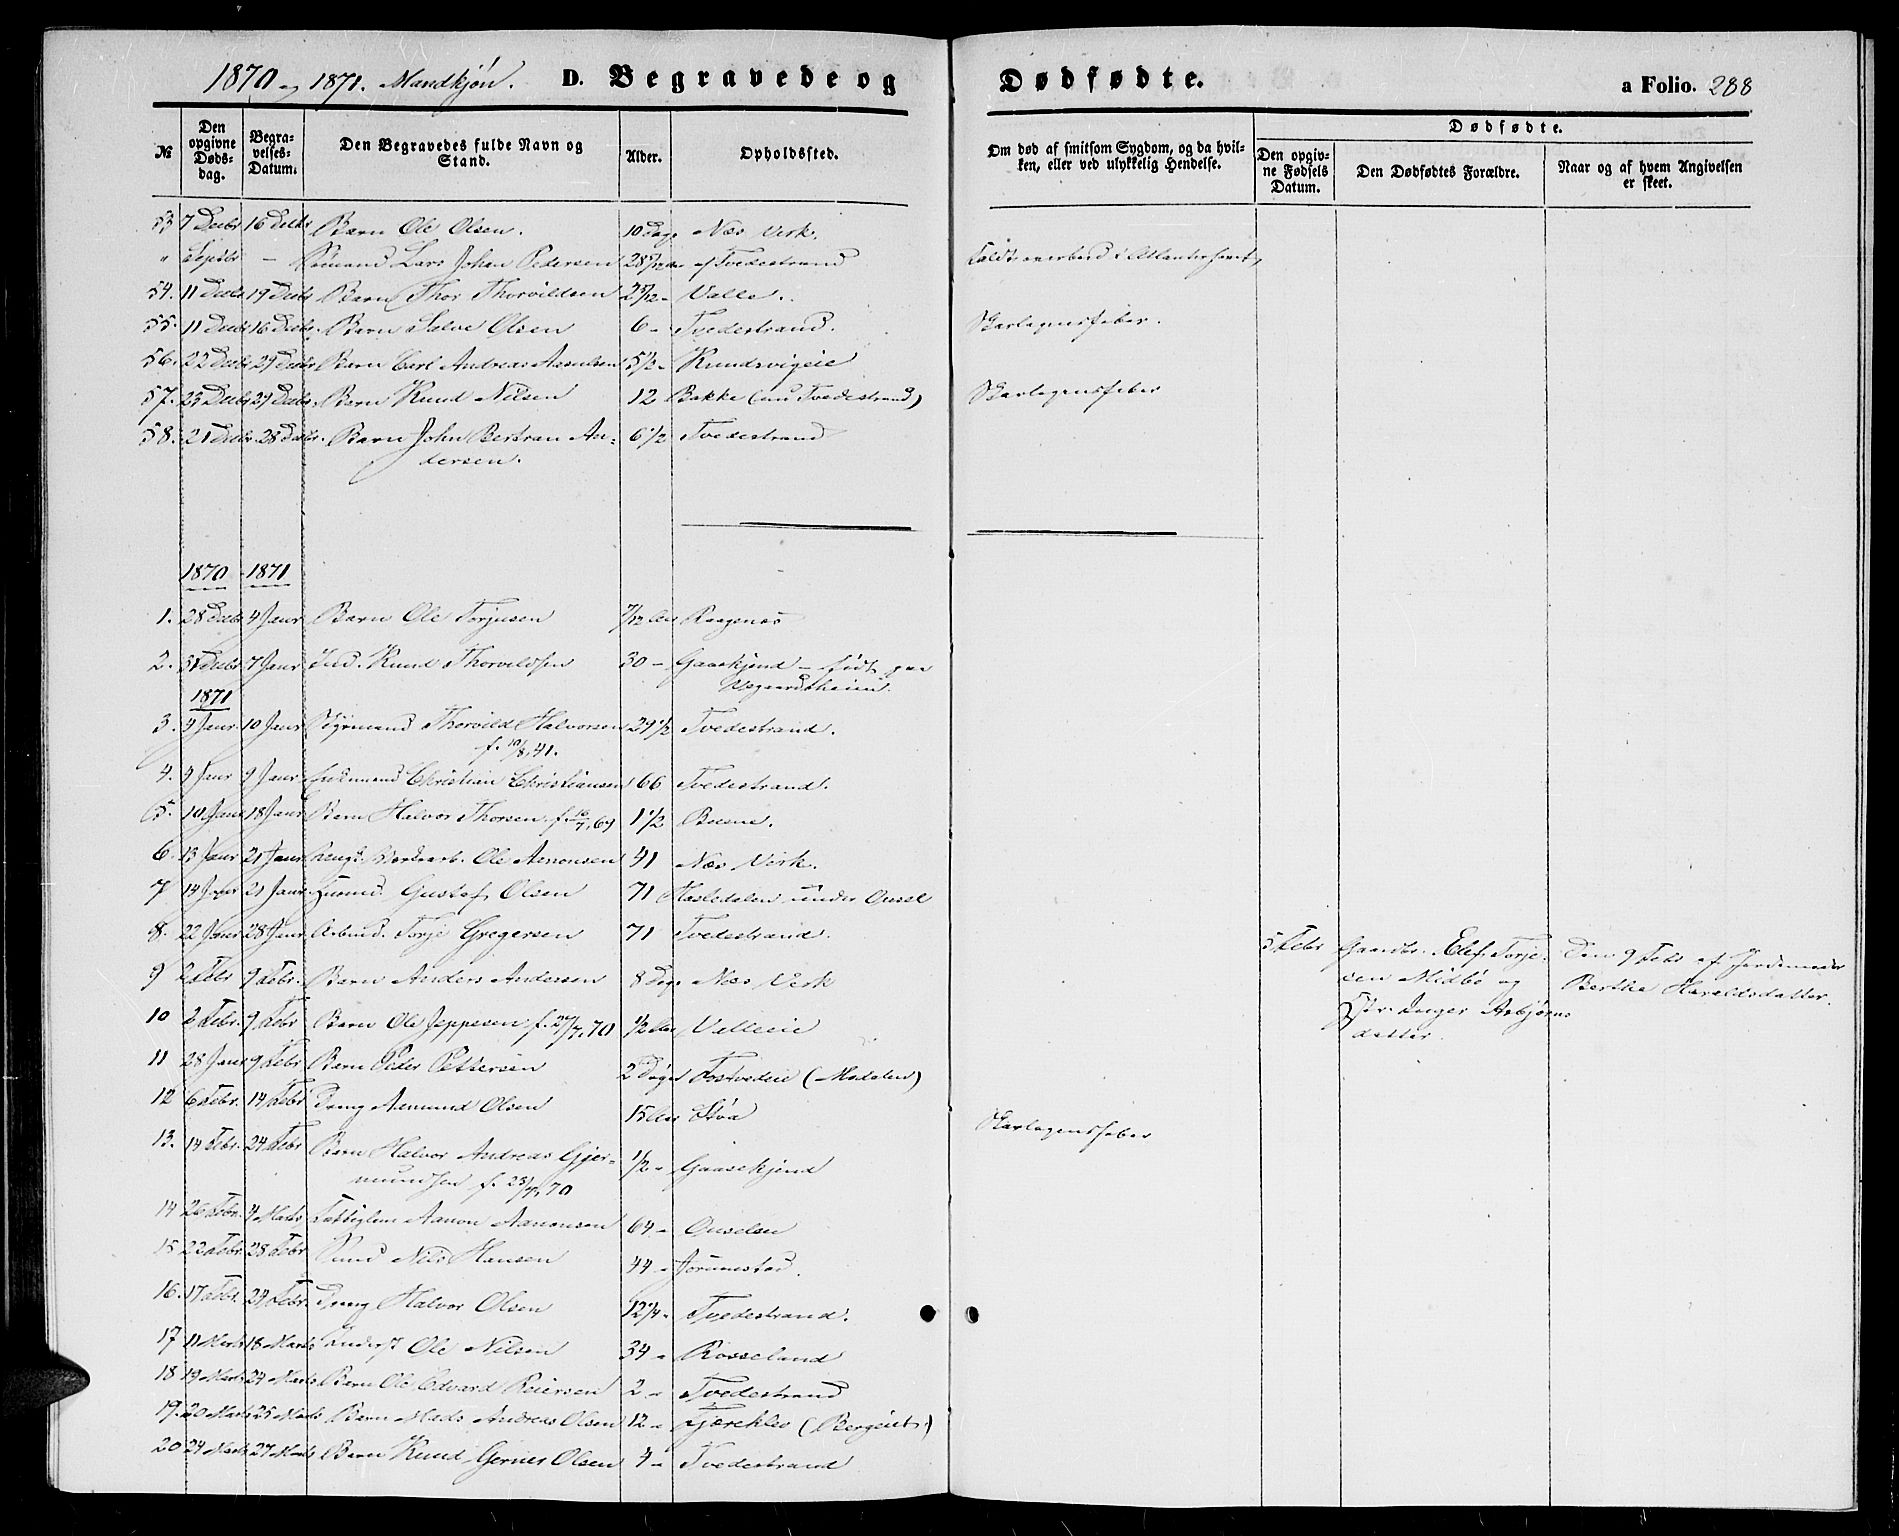 1870 og 1871. Mandkjøn. D. Begravede og Dødfødte. a Folio. 288
№ Den opgivne Døds-dag. Begra-velses-Datum. Den Begravedes fulde Navn og Stand. Alder. Opholdssted. Om død af smitsom Sygdom, og da hvil-ken, eller ved ulykkelig Hendelse. Dødfødte. Den opgiv-ne Fødsels Datum. Den Dødfødtes Forældre. Naar og af hvem Angivelsen er skeet.
53 7 Decbr 16 Decbr Barn Ole Olsen. 10 Dage Næs Verk.
" - Sømand Lars Johan Pedersen 28 af Tvedestrand Faldt overbord i Atlanterhavet
54. 11 Decbr 19 Decbr Barn Thor Thorvildsen 2 Valle.
55. 11 Decbr 16 Decbr. Barn Salve Olsen 6 - Tvedestrand. Skarlagensfeber.
56. 22 Decbr 29 Decbr Barn Carl Andreas 5 1/2 - Knudsvigeie
57. 23 Decbr 29 Decbr. Barn Knud Nilsen 12 Bakke (nu Tvedestrand) Skarlagensfeber
58. 21 Decbr 28 Decbr. Barn John Bertran An-
dersen. 6 1/2 Tvedestrand
1870 - 1871
1. 28 Decbr 4 Janr Barn Ole Torjusen 7/12 Aar Raagenæs
2. 31 Decbr 7 Janr Ind. Knud Thorvildsen 30 - Gaaskjend - født paa
Vegaardsheien.
1871
3. 4 Janr 10 Janr Styrmand Thorvild Halvorsen 29 1/2 Tvedestrand.
f. 10/8. 41.
4. 4 Janr 9 Janr Christian Christiansen 66 Tvedestrand.
5. 10 Janr 18 Janr Barn Halvor Thorsen f. 16/7. 69 1 1/2 Buene.
6. 13 Janr 21 Janr Ole Aanonsen 41 Næs Verk.
7 14 Janr 21 Janr Husmd. Gustaf Olsen 71 Hasledalen under Ousel
8. 22 Janr 28 Janr Arbmd. Torje Gregersen 71 Tvedestrand.
5 Febr Gaardbr. Elef Torje- Den 9 Febr af Jordemoder
9 2 Febr 9 Febr. Barn Anders Andersen 8 Dage Næs Verk
sen Midbø og Berthe Haraldsdatter.
10 2 Febr. 9 Febr Barn Ole Jeppesen f. 24/7. 70 1/2 Aar Valleeie
Hstr. Inger Asbjørns
datter.
11 28 Janr 9 Febr Barn Peder Pettersen 2 Dage Fostvedeie (Modalen)
12 6 Febr. 14 Febr Dreng Aamund Olsen 15 Aar Støa
13. 14 Febr. 24 Febr Barn Halvor Andreas Gjer-
mundsen f. 23/7. 70 1/2 - Gaasekjend Skarlagensfeber
14 26 Febr. 4 Marts Fattiglem Aanon Aanonsen 64 - Ouselen
15 22 Febr. 28 Febr Nils Hansen 44 - Jorunstad.
16. 17 Febr. 24 Febr. Dreng Halvor Olsen 12 1/4 - Tvedestrand.
17 11 Marts 18 Marts Inderst Ole Nilsen 34 - Rosseland
18 19 Marts 24 Marts Barn Ole Edvard Reiersen 2 - Tvedestrand
19. 20 Marts 25 Marts Barn Mads Andreas Olsen 12 - Fjæreklev (Bergeiet)
20 24 Marts 27 Marts Barn Knud Gerner Olsen 4 - Tvedestrand